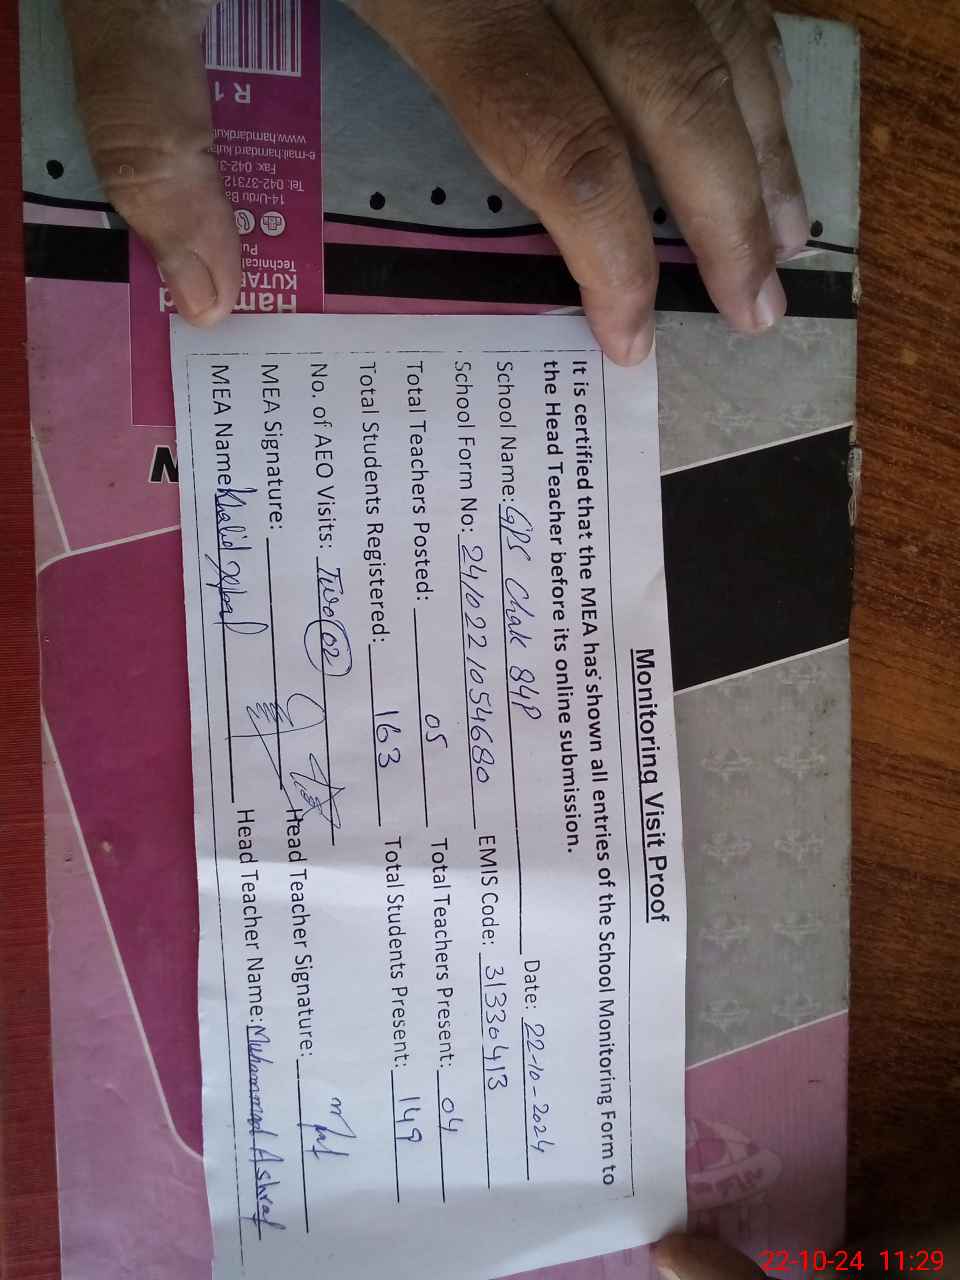 Monitoring Visit Proof
It is certified that the MEA has shown all entries of the School Monitoring Form to
the Head Teacher before its online submission.
School Name: GPS Chak 84P Date: 22-10-2024
School Form No: 241022 1054680 EMIS Code: 31330413
Total Teachers Posted: 05 Total Teachers Present: 04
Total Students Registered: 163 Total Students Present: 149
No. of AEO Visits: Two 02
MEA Signature: Head Teacher Signature:
MEA Name Khalid Iqbal Head Teacher Name: Muhammad Ashraf
R 1
www.hamdardkut
e-mail:hamdard.kuta
Fax: 042-3
Tel: 042-37312
14-Urdu Ba
Pu
Technical
KUTAB
Ham d
22-10-24 11:29